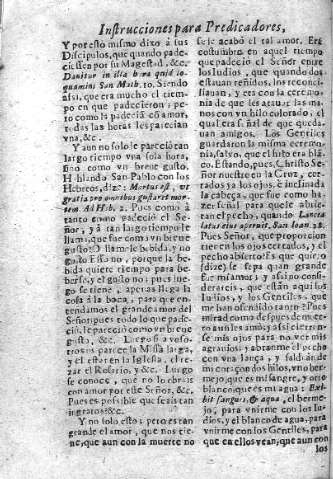 Instrucciones para Predicadores,
Y por esto mismo dixo à sus
Discipulos, que quando pade-
ciessen por su Magestad, &c.
Dabitur in illa hora quid lo-
quamini San Math. 10. Siendo
assi, que era mucho el tiem-
po en que padecieron; pe-
ro como la padeciã cõ amor,
todas las horas les parecian
vna, &c.
Y aun no solo le pareciò an
largo tiempo vna sola hora,
sino como vn breue gusto.
Hablando San Pablo con los
Hebreos, dize: Mortus est, vt
gratia pro omnibus gustaret mor-
tem Ad Heb. 2. Pues como à
tanto como padeciò el Se-
ñor, y à tan largo tiempo le
llama, que fue como vn breue
gusto? O llame le bebida, y no
gusto Esso no, porque la be-
bida quiere tiempo para be-
berse, y el gusto no; pues lue-
go se tiene, apenas llega la
cosa à la boca, para que en-
tendamos el grande amor del
Señor; pues todo lo que pade-
ciò, le pareciò como vn breue
gusto, &c. Luego à voso-
tros os parece la Missa larga,
y el estar en la Iglesia, el re-
zar el Rosario, y &c. Luego
se conoce, que no lo obrais
con amor por este Señor, &c.
Pues es possible que seais tan
ingratos? &c.
Y no solo esto; pero es tan
grande el amor, que nos tie-
ne, que aun con la muerte no
se le acabò el tal amor. Era
costumbre en aquel tiempo
que padeciò el Señor entre
los Iudios, que quando dos
estauan reñidos, los reconci-
liauan, y era con la ceremo-
nia de que les atauan las ma-
nos con vn hilo colorado; el
qual era señal de que queda-
uan amigos. Los Gentiles
guardaron la misma ceremo-
nia, saluo, que el hilo era blã-
co. Estando, pues, Christo Señor
nuestro en la Cruz, cerra-
dos ya los ojos, è inclinada
la cabeça, que fue como ha-
zer señal para que le abries-
sen el pecho, quando Lancea
latus eius aperuit, San Ioan. 28.
Pues Señor, que proporcion
tiene los ojos cerrados, y el
pecho abierto? Es que quiso
dize) se sepa quan grande
es mi amor; y assi no con-
siderareis, que estàn aqui los
Iudios, y los Gentiles, que
me han ofendido tanto? Pues
mirad como despues de muer-
to aun los amo; y assi cierren-
se mis ojos para no ver mis
agrauios, y abranme el pecho
con vna lança, y saldràn de
mi coraçon dos hilos, vno ber-
mejo, que es mi sangre, y otro
blanco, que es mi agua: Exi-
bit sanguis, & aqua, el berme-
jo, para vnirme con los Iu-
dios, y el blanco de agua, para
vnirme con los Gentiles, para
que ellos vean, que aun con
los